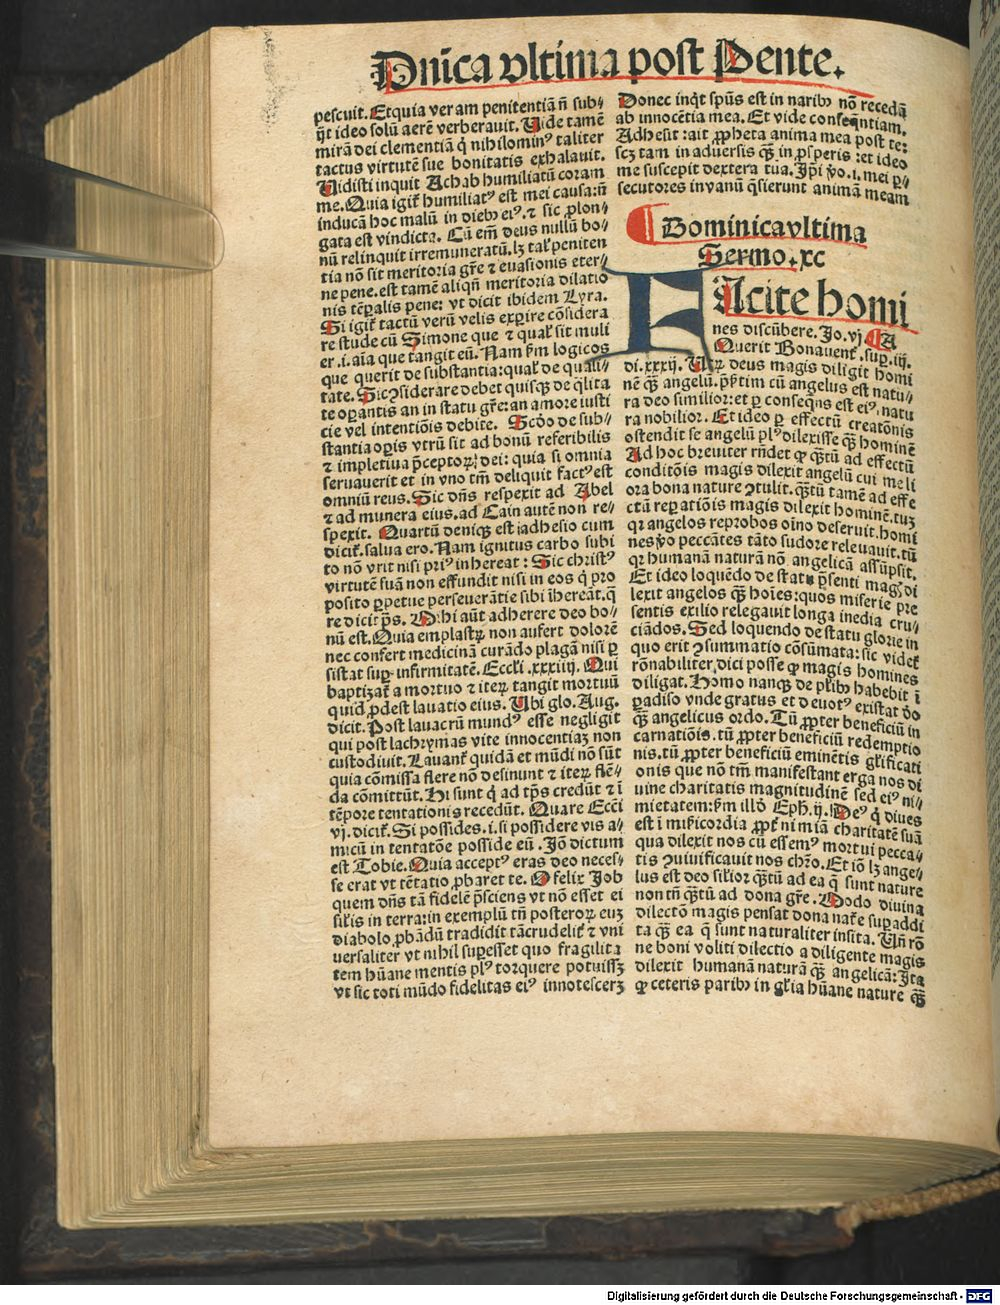 Dnica vltima post Pente.
pescuit. Et quia veram penitentiã nõ sub⸗
ijt ideo solũ aerẽ verberauit. Uide tamẽ
mirã dei clementiã q̇ nihilominꝰ taliter
tactus virtutẽ sue bonitatis exhalauit.
Uidisti inquit Achab humiliatũ coram
me. Quia igit̃ humiliatꝰ est mei causa: nõ
inducã hoc malũ in diebꝫ eiꝰ. ⁊ sic ꝓlon⸗
gata est vindicta. Cũ em̃ deus nullũ bo⸗
nũ relinquit irremuneratũ. lꝫ tal̃ peniten
tia nõ sit meritoria gr̃e ⁊ euasionis eter⸗
ne pene. est tamẽ aliqñ meritoria dilatio
nis tẽꝑalis pene: vt dicit ibidem Lyra.
Si igit̃ tactũ verũ velis exꝑire cõsidera
re stude cũ Simone que ⁊ qual̃ sit muli
er .i. aĩa que tangit eũ. Nam ẜm logicos
que querit de substantia: qual̃ de quali⸗
tate. Sic ꝯsiderare debet quisqꝫ de q̃lita
te oꝑantis an in statu gr̃e: an amore iusti
cie vel intentiõis debite. Scdo de sub⸗
stantia oꝑis vtrũ sit ad bonũ referibilis
⁊ impletiua p̃ceptoꝝ dei: quia si omnia
seruauerit et in vno tm̃ deliquit factꝰ est
omniũ reus. Sic dñs respexit ad Abel
⁊ ad munera eius. ad Cain autẽ non re⸗
spexit. Quartũ deniqꝫ est adhesio cum
dicit̃. salua ero. Nam ignitus carbo subi
to nõ vrit nisi priꝰ inhereat: Sic christꝰ
virtutẽ suã non effundit nisi in eos q̇ pro
posito ꝑpetue perseuerãtie sibi ĩhereãt. q̃
re dicit p̃s. Mihi aũt adherere deo bo⸗
nũ est. Quia emplastꝝ non aufert dolorẽ
nec confert medicinã curãdo plagã nisi ꝑ
sistat suꝑ infirmitatẽ. Eccl̃i .xxxiiij. Qui
baptizat̃ a mortuo ⁊ iteꝝ tangit mortuũ
quid ꝓdest lauatio eius. Ubi glo. Aug.
dicit. Post lauacrũ mundꝰ esse negligit
qui post lachrymas vite innocentiaꝫ non
custodiuit. Lauant̃ quidã et mũdi nõ sũt
quia cõmissa flere nõ desinunt ⁊ iteꝝ flẽ⸗
da cõmittũt. Hi sunt q̇ ad tp̃s credũt ⁊ ĩ
tẽpore tentationis recedũt. Quare Ecc̃i
vj. dicit̃. Si possides .i. si possidere vis a⸗
micũ in tentatõe posside eũ. Iõ dictum
est Tobie. Quia acceptꝰ eras deo neces⸗
se erat vt tẽtatio ꝓbaret te. O felix Job
quem dñs tã fidelẽ p̃sciens vt nõ esset ei
sil̃is in terra: in exemplũ tñ posteroꝝ euꝫ
diabolo ꝓbãdũ tradidit tã crudelit̃ ⁊ vni
uersaliter vt nihil suꝑesset quo fragilita
tem hũane mentis plꝰ torquere potuissꝫ
vt sic toti mũdo fidelitas eiꝰ innotescerꝫ
Donec inq̇t spũs est in naribꝫ nõ recedã
ab innocẽtia mea. Et vide conseq̃ntiam.
Adhesit: ait ꝓpheta anima mea post te:
scꝫ tam in aduersis q̃ꝫ in ꝓsperis: et ideo
me suscepit dextera tua. Ip̃i ꝟo .i. mei ꝑ⸗
secutores in vanũ q̃sierunt animã meam
Dominica vltima
Sermo. xc
FAcite homi
nes discũbere. Jo. vj. A
Querit Bonauent̃. suꝑ .iij.
di. xxxij. Utꝝ deus magis diligit homi
nẽ q̃ꝫ angelũ. p̃ẜtim cũ angelus est natu⸗
ra deo similior: et ꝑ conseq̃ns est eiꝰ natu
ra nobilior. Et ideo ꝑ effectũ creatõnis
ostendit se angelũ plꝰ dilexisse q̃ꝫ hominẽ
Ad hoc breuiter rñdet ꝙ q̃ꝫtũ ad effectũ
conditõis magis dilexit angelũ cui meli
ora bona nature ꝯtulit. q̃ꝫtũ tamẽ ad effe
ctũ reꝑatiõis magis dilexit hominẽ. tuꝫ
qꝛ angelos reprobos oĩno deseruit. homi
nes ꝟo peccãtes tãto sudore releuauit. tũ
qꝛ humanã naturã nõ angelicã assũpsit.
Et ideo loquẽdo de statu p̃senti magꝭ di
lexit angelos q̃ꝫ hoĩes: quos miserie pre
sentis exilio relegauit longa inedia cru⸗
ciãdos. Sed loquendo de statu glorie in
quo erit ꝯsummatio cõsũmata: sic videt̃
rõnabiliter dici posse ꝙ magis homines
diligat. Homo nanqꝫ de pl̃ibꝫ habebit ĩ
ꝑadiso vnde gratus et deuotꝰ existat ꝟo
q̃ꝫ angelicus ordo. Tũ ꝓpter beneficiũ in
carnatiõis. tũ ꝓpter beneficiũ redemptio
nis. tũ ꝓpter beneficiũ eminẽtis gl̃ificati
onis que nõ tm̃ manifestant erga nos di
uine charitatis magnitudinẽ sed eiꝰ ni⸗
mietatem: ẜm illõ Eph. ij. Deꝰ q̇ diues
est ĩ mi̅icordia ꝓpt̃ nimiã charitatẽ suã
qua dilexit nos cũ essemꝰ mortui pecca⸗
tis ꝯuiuificauit nos chr̃o. Et iõ lꝫ ange⸗
lus est deo sil̃ior q̃ꝫtũ ad ea q̃ sunt nature
non tñ q̃ꝫtũ ad dona gr̃e. Modo diuina
dilectõ magis pensat dona nat̃e suꝑaddi
ta q̃ꝫ ea q̃ sunt naturaliter insita. Uñ rõ
ne boni voliti dilectio a diligente magis
dilexit humanã naturã q̃ꝫ angelicã: Ita
ꝙ ceteris paribꝫ in gl̃ia hũane nature q̃ꝫ
Digitalisierung gefördert durch die Deutsche Forschungsgemeinschaft - DFG